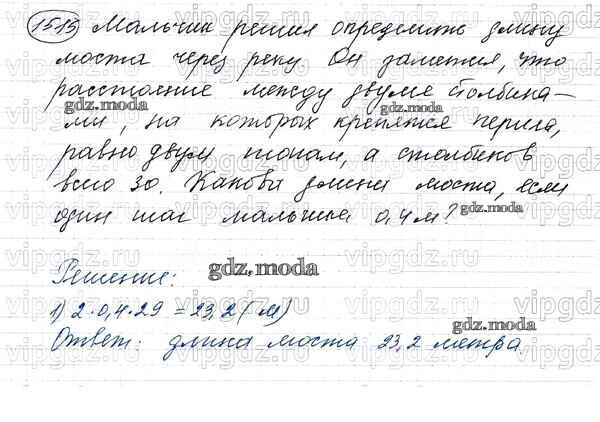 1515 Мальчик решил определить длину
моста через реку Он заметил, что
расстояние между двумя столбика-
ми, на которых крепятся перила,
равно двум шагам, а столбиков
всего 30. Какова длина моста, если
один шаг мальчика 0,4 м?
Решение:
1) 2·0,4·29 = 23,2 (м)
Ответ: длина моста 23,2 метра.
gdz.moda
gdz.moda
gdz.moda
gdz.moda
gdz.moda